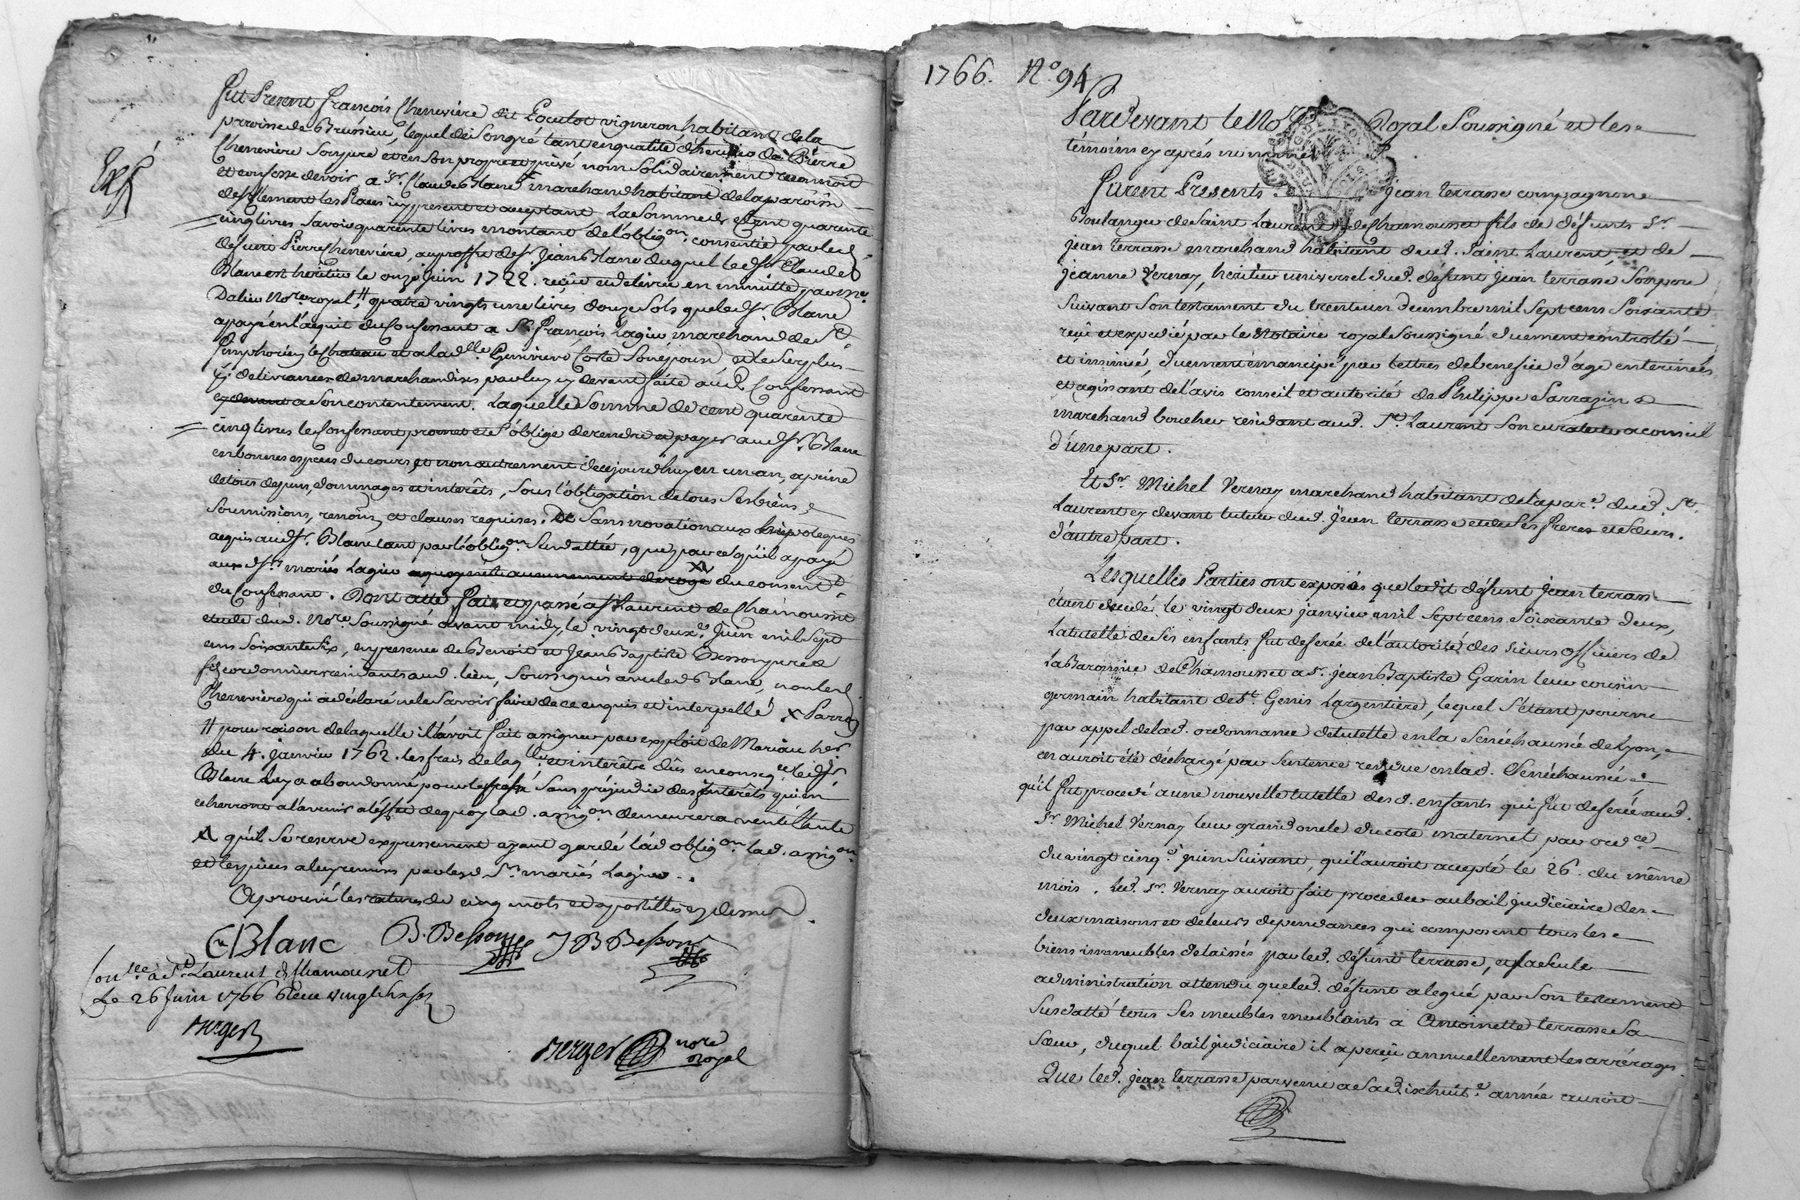 Fut Present François Chenevière dit Poculot vigneron habitant de la
paroisse de Brussieu, lequel de son gré tant en qualité d'heritier de Pierre
Chenevière son pere et en son propre et privé nom solidairement reconnoit
et confesse devoir a Sr. Claude Blanc marchand habitant de la paroisse
de St Clement les Places icy present et acceptant La somme de cent quarente
cinq livres Savoir quarente livres montant de l'oblig.on consentie par led.
defunt Pierre Chenevière, au proffit de Sr. Jean Blanc duquel led. Sr. Claude
Blanc est heritier le onze juin 1722. reçüe et delivrée en minutte par Me.
Dalin Notre. royal H, quatre vingts une livres douze sols que led. Sr. Blanc
a payé en l'acquit du Confessant a Sr. François Lagier marchand de St.
Simphorien le chateau et a la d.lle Genevieve Coste son epouse et le surplus
de livraisons de marchandises par luy cy devant faite aud. Confessant
a son contentement. Laquelle somme de cent quarente
cinq livres le Confessant promet et s'oblige de rendre et payer aud. Sr. Blanc
en bonnes especes du cours et non autrement dicejourd'huy en un an, a peine
de tous depens, dommages et interêts, sous l'obligation de tous ses biens
soumissions, renon.on et clauses requises. Et Sans novation aux hipoteques
acquis aud. Sr. Blanc tant par l'oblig.on susdattée, que par ce qu'il a payé
aux d. Srs. mariés Lagier du consent.t
du Confessant. Dont acte fait et passé a St Laurent de Chamousset
etude du d. Nore. Soussigné avant midy le vingt deux.e Juin mil sept
cens soixante six, en presence de Benoit et Jean Baptiste Besson pere &
fils cordonniers residants aud. lieu, Soussignés avec led. Blanc, non led.
Chenevière qui a declaré ne le savoir faire de ce enquis et interpellé
H pour raison de laquelle il l'avoit fait assigner par exploit de
du 4. janvier 1762. les frais de laq.lle et interêts dûs en conseq.ce led. Sr.
Blanc luy a abondonné pour le passé Sans préjudice des interêts qui en
echerront a l'avenir a l'effet de quoy lad. assig.on demeurera
qu'il se reserve expressement ayant gardé lad. oblig.on lad. assig.on
et les pieces a luy remises par lesd. Srs. mariés Lagier.
Aprouvé les ratures de cinq mots et apostilles cy dessus
C. Blanc B. Bessons J B Bessons
Con.lle à St. Laurent de Chamousset
Le 26 Juin 1766 Reçu vingt
Berger
Berger nore royal
1766. No 94
Pardevant le No Royal Soussigné et les
témoins cy aprés nommés
Furent Presents Jean terrasse compagnon
Boulanger de Saint Laurent de Chamousset fils de défunts Sr.
jean terrasse marchand habitant dud. Saint Laurent, et de
jeanne Vernay, heritier universel dud. defunt Jean terrasse Son pere
suivant son testament du trente un decembre mil sept cens soixante
reçû et expedié par le Notaire royal soussigné, düement controllé
et insinüé, düement émancipé par lettres de benefice d'age enterinées
et agissant de l'avis conseil et autorité de Philippe Sarrazin
marchand boucher residant aud. St. Laurent son curateur a conseil
d'une part.
Et Sr. Michel Vernay marchand habitant de la par.e dud. St.
Laurent cy devant tuteur dud. Jean terrasse et de ses freres et soeurs,
d'autre part.
Lesquelles Parties ont exposés que ledit défunt jean terrasse
étant decedé le vingt deux janvier mil sept cens soixante deux,
la tutelle de ses enfants fut deferée de l'autorité des sieurs officiers de
la Baronnie de Chamousset a Sr. jean Baptiste Garin leur cousin
germain habitant de St. Genis Largentiere, lequel s'étant pourvu
par appel de lad. ordonnance de tutelle en la Senéchaussée de Lyon,
en auroit été déchargé par Sentence rendüe en lad. Senéchaussée
qu'il fut procedé a une nouvelle tutelle desd. enfants qui fut deferée aud.
Sr. Michel Vernay leur grand oncle du coté maternel par ord.ce
du vingt cinq.e juin suivant, qu'il auroit acepté le 26. du même
mois. Led. Sr. Vernay auroit fait proceder au bail judiciaire des
deux maisons et de leurs dependances qui composent tous les
biens immeubles delaissés par led. défunt terrasse, et sa seule
administration attendu que led. défunt a legué par son testament
susdatté tous ses meubles meublants à Antoinette terrasse sa
soeur, duquel bail judiciaire il a perçû annuellement les arrérages.
Que led. jean terrasse parvenu a sa dixhuit.e année auroit